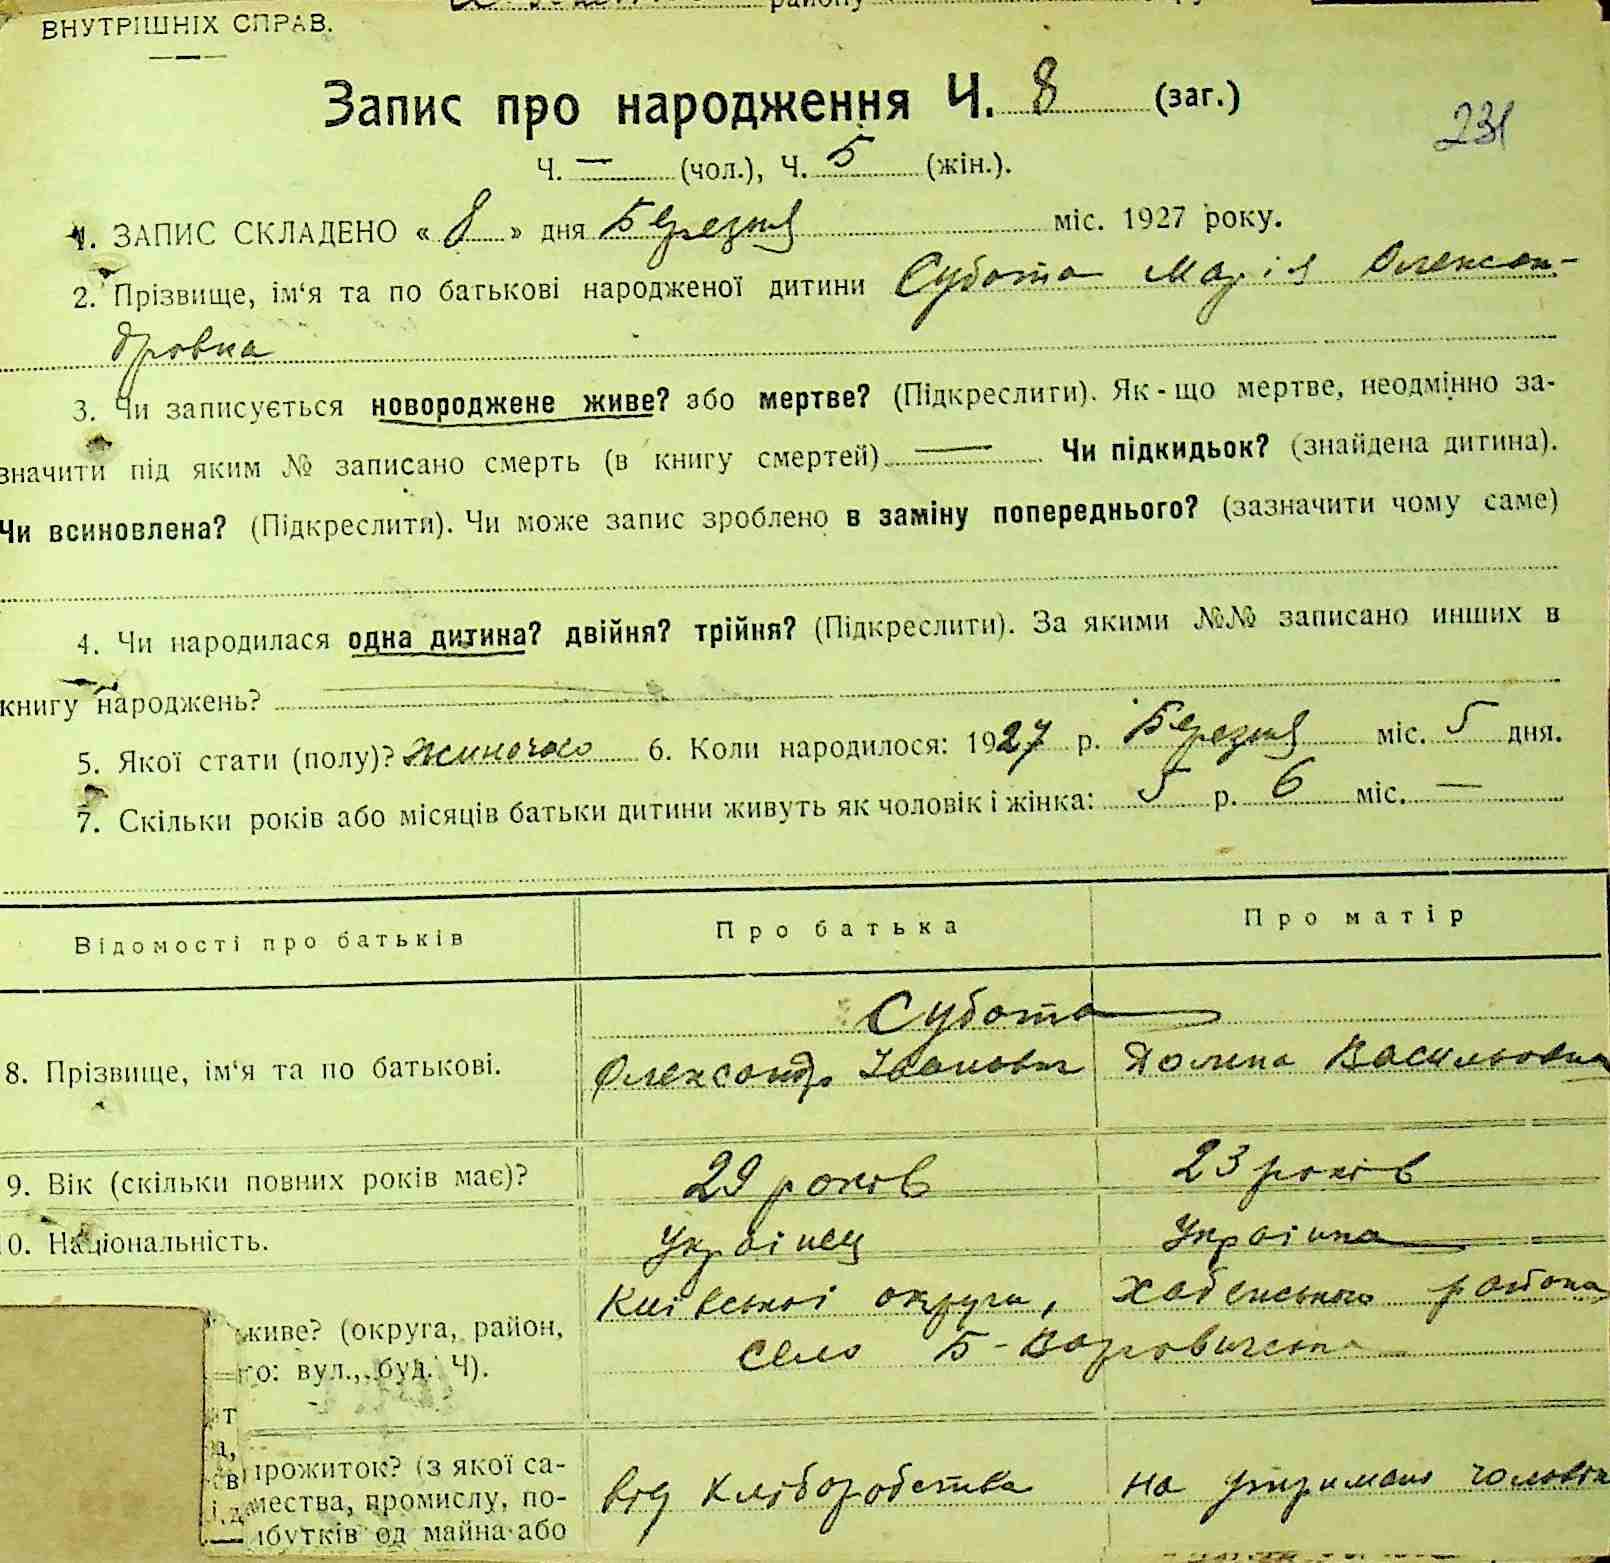 району
ВНУТРІШНІХ СПРАВ.
Запис про народження Ч. 8 (заг.)
231
Ч. — (чол.), Ч. 5 (жін.).
1. ЗАПИС СКЛАДЕНО « 8 » дня Березня міс. 1927 року.
2. Прізвище, ім‘я та по батькові народженої дитини Субота Марія Олексан-
дровна
3. Чи записується новороджене живе? або мертве? (Підкреслити). Як-що мертве, неодмінно за-
значити під яким № записано смерть (в книгу смертей) — Чи підкидьок? (знайдена дитина).
Чи всиновлена? (Підкреслити). Чи може запис зроблено в заміну попереднього? (зазначити чому саме)
4. Чи народилася одна дитина? двійня? трійня? (Підкреслити). За якими №№ записано инших в
книгу народжень?
5. Якої стати (полу)? жиночого 6. Коли народилося: 1927 р. Березня міс. 5 дня.
7. Скільки років або місяців батьки дитини живуть як чоловік і жінка: 5 р. 6 міс. —
Відомості про батьків Про батька Про матір
Субота
8. Прізвище, ім‘я та по батькові. Олександр Іванович Полина Васильовна
9. Вік (скільки повних років має)? 29 років 23 років
0. Національність. Українец Українка
Київської округи, Хабенського района
живе? (округа, район,
село Б-Варовичська
го: вул., буд. Ч).
прожиток? (з якої са-
від хліборобства на утримано чоловіка
мества, промислу, по-
ибутків од майна або